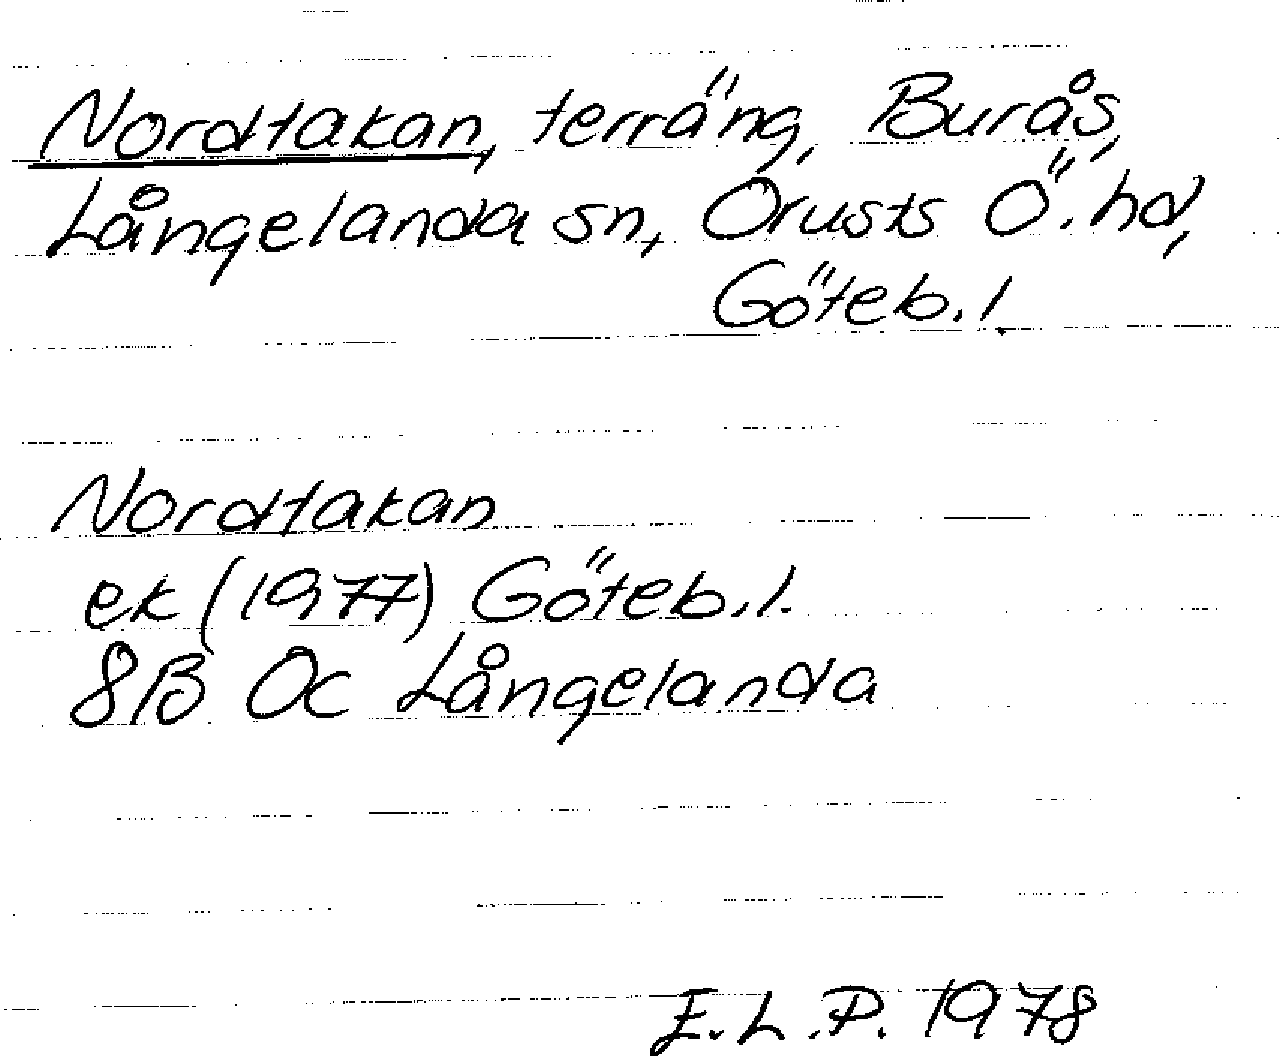 Nordtakan, terräng, Burås,
Långelanda sn, Orusts Ö. hd,
Göteb. l.
Nordtakan
ek (1977) Göteb. l.
8B 0c Långelanda
E.L.P. 1978